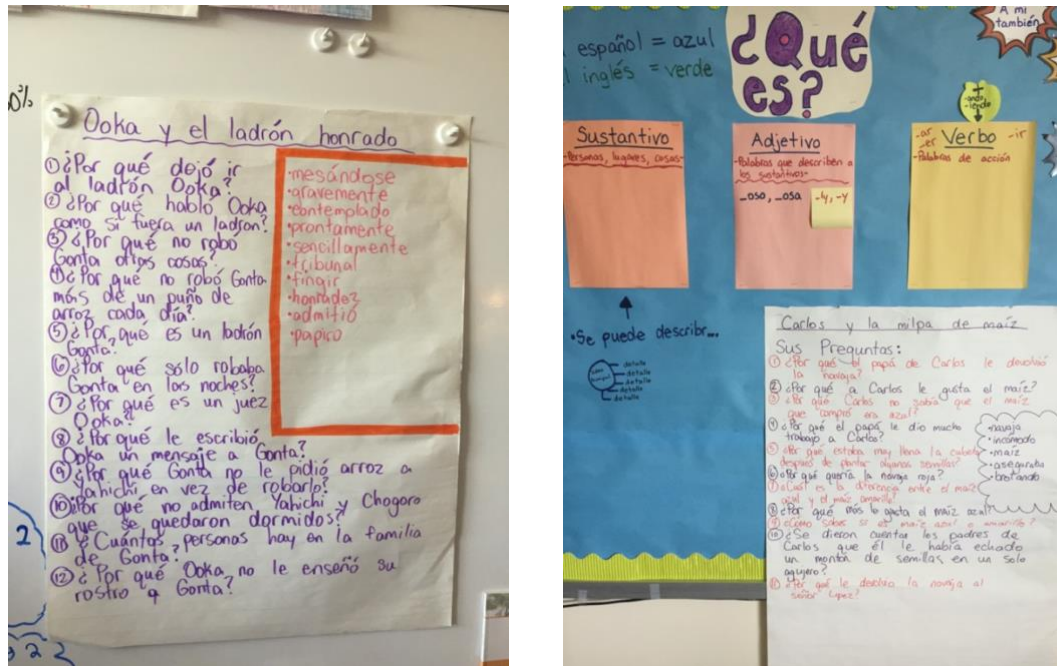 0%
Ooka y el ladrón honrado
① ¿Por qué dejó ir
al ladrón Ooka?
② ¿Por qué habló Ooka
como si fuera un ladrón?
③ ¿Por qué no robó
Gonta otras cosas?
④ ¿Por qué no robó Gonta
más de un puño de
arroz cada día?
⑤ ¿Por qué es un ladrón
Gonta?
⑥ ¿Por qué sólo robaba
Gonta en las noches?
⑦ ¿Por qué es un juez
Ooka?
⑧ ¿Por qué le escribió
Ooka un mensaje a Gonta?
⑨ ¿Por qué Gonta no le pidió arroz a
Yahichi en vez de robarlo?
⑩ ¿Por qué no admiten Yahichi y Chogoro
que se quedaron dormidos?
⑪ ¿Cuántas personas hay en la familia
de Gonta?
⑫ ¿Por qué Ooka no le enseñó su
rostro a Gonta?
•mesándose
•gravemente
•contemplado
•prontamente
•sencillamente
•tribunal
•fingir
•honradez
•admitió
•papiro
2
español = azul
inglés = verde
¿Qué
es?
A mi
también
Sustantivo
-Personas, lugares, cosas-
Adjetivo
-Palabras que describen a
los sustantivos-
-oso, -osa
-ly, -y
+
-ando
-iendo
-ar
-er
Verbo
-ir
-Palabras de acción
•Se puede describr...
detalle
detalle
detalle
detalle
detalle
Carlos y la milpa de maíz
Sus Preguntas:
① ¿Por qué el papá de Carlos le devolvió
la navaja?
② ¿Por qué a Carlos le gusta el maíz?
③ ¿Por qué Carlos no sabía que el maíz
que compró era azul?
④ ¿Por qué el papá le dio mucho
trabajo a Carlos?
⑤ ¿Por qué estaba muy llena la cubeta
después de plantar algunas semillas?
⑥ ¿Por qué quería la navaja roja?
⑦ ¿Cuál es la diferencia entre el maíz
azul y el maíz amarillo?
⑧ ¿Por qué más le gusta el maíz azul?
⑨ ¿Cómo sabes si es maíz azul o amarillo?
⑩ ¿Se dieron cuenta los padres de
Carlos que él le había echado
un montón de semillas en un solo
agujero?
⑪ ¿Por qué le devolvió la navaja al
señor López?
•navaja
•incómodo
•maíz
•aseguraba
•brotando